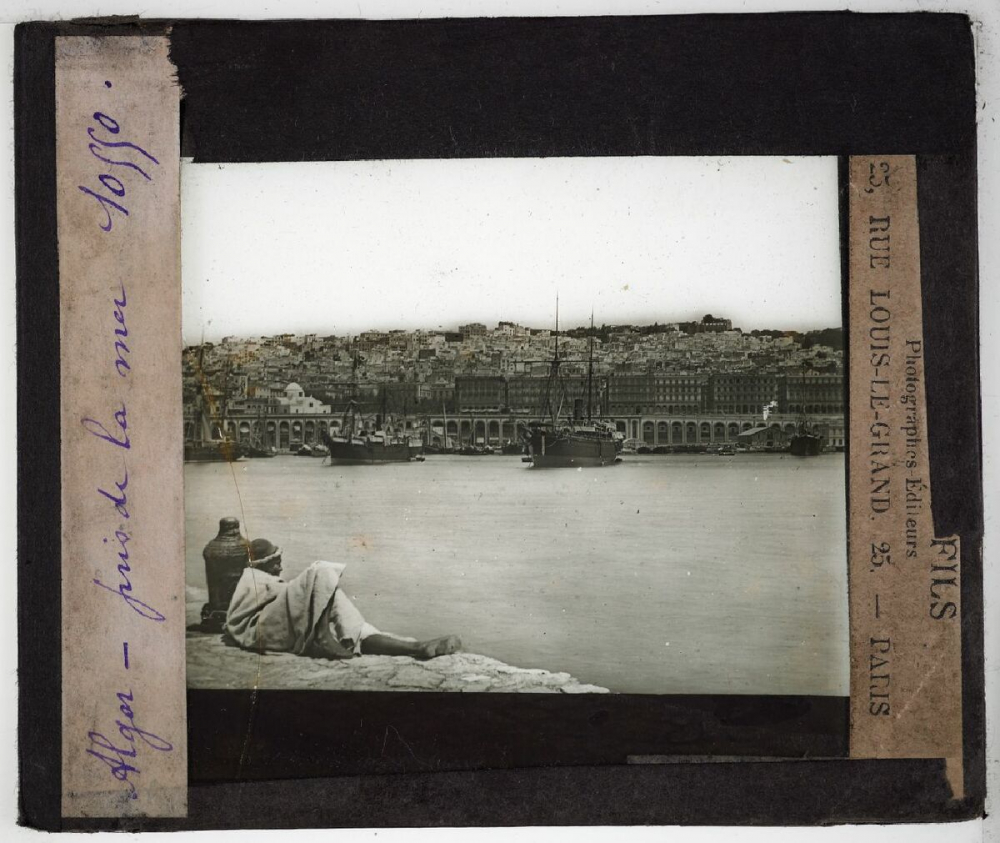 Alger — pris de la mer 10550.
FILS
Photographes-Éditeurs
25, RUE LOUIS-LE-GRAND, 25. — PARIS